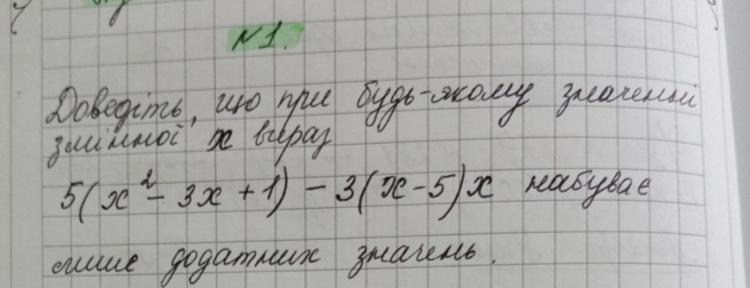 №1.
Доведіть, що при будь-якому значенні
змінної x вираз
5(x² - 3x + 1) - 3(x - 5)x набуває
лише додатних значень.